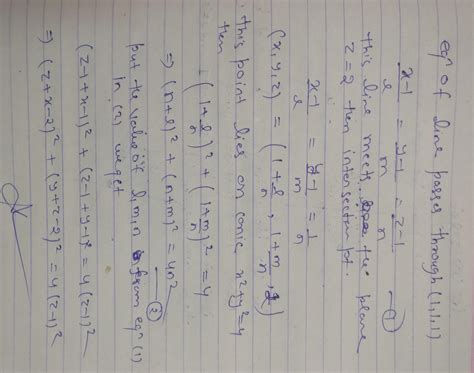 eqⁿ of line passes through (1,1,1)
x-1/l = y-1/m = z-1/n —①
this line meets the plane
z=2 then intersection pt.
x-1/l = y-1/m = 1/n
(x,y,z) = (1+l/n, 1+m/n, 2)
this point lies on conic x²+y²=4
then
(1+l/n)² + (1+m/n)² = 4
⇒ (n+l)² + (n+m)² = 4n² —②
put the value of l,m,n from eqⁿ (1)
in (2) we get
(z-1+x-1)² + (z-1+y-1)² = 4(z-1)²
⇒ (z+x-2)² + (y+z-2)² = 4(z-1)²